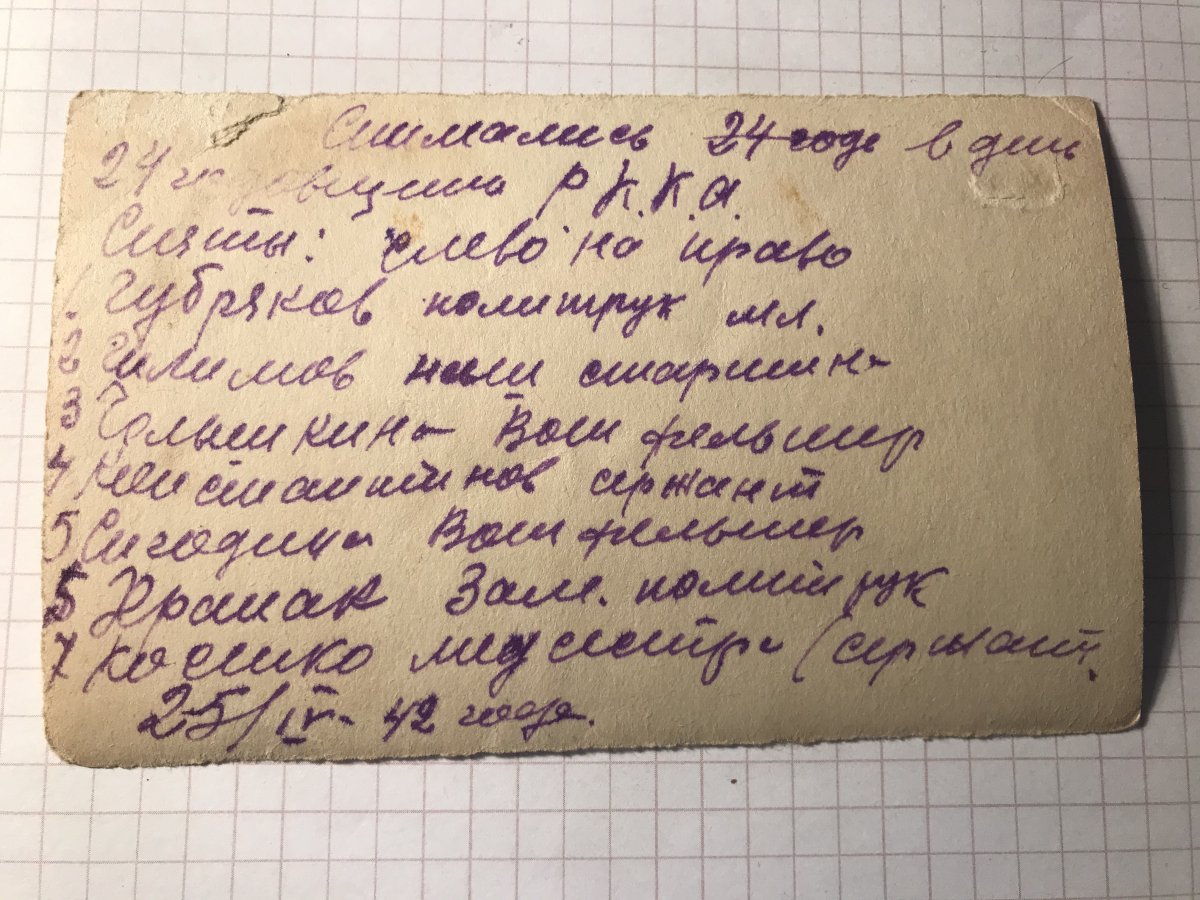 Снимались 24 годе в день
24 годовщины Р.К.К.А.
Сняты: слево на право
1. Губряков политрук мл.
2 Филимов старшин-
3 Голышкина Воен фельшер
4 Констант инов сржант
5 Сигодина Воен фельшер
6 Храпак Зам. политрук
7 Космко мед сестра (сержант.
25/IV- 42 года.